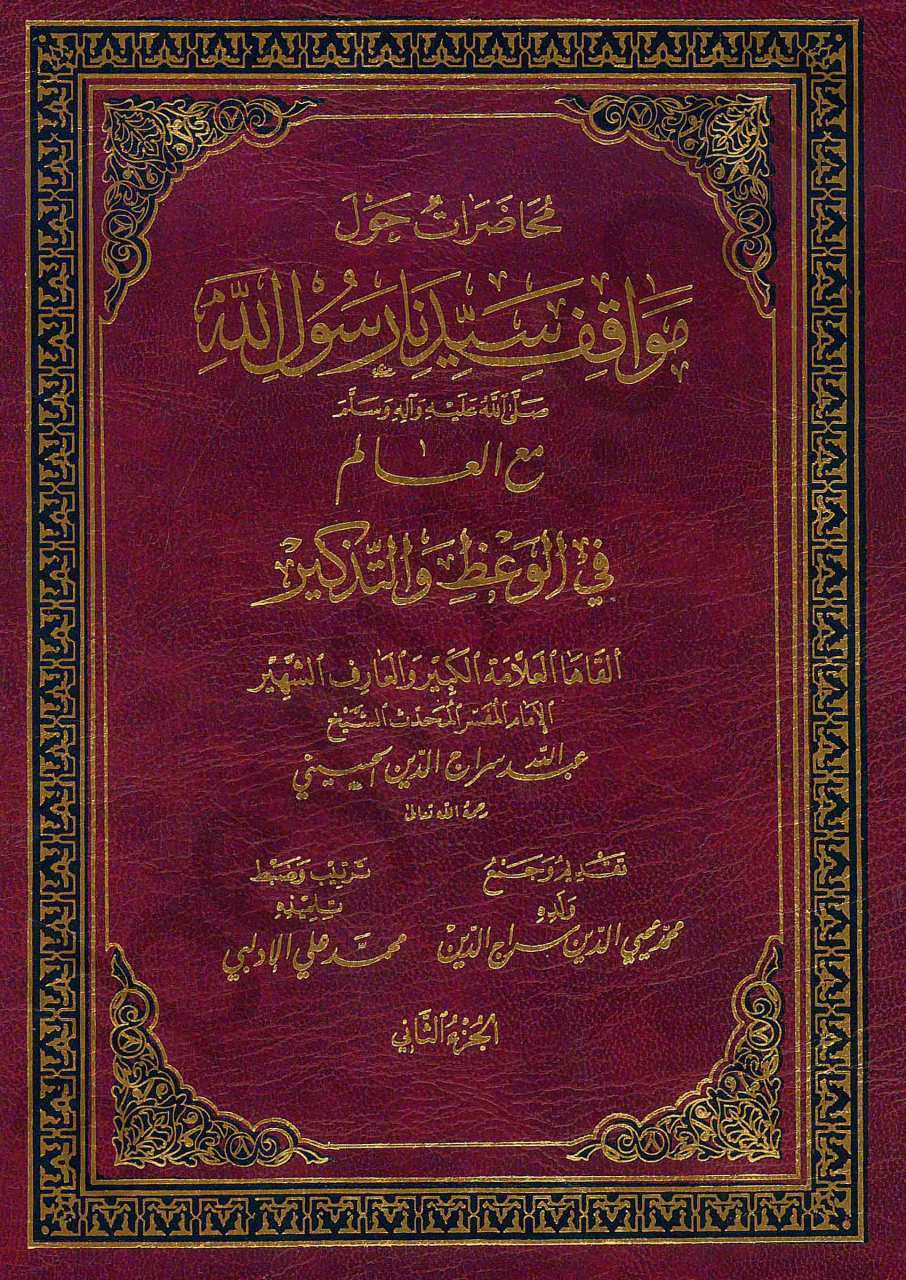 مُحَاضَرَاتٌ حَوْلَ
مَوَاقِفِ سَيِّدِنَا رَسُوْلِ اللهِ
صَلَّى اللهُ عَلَيْهِ وَآلِهِ وَسَلَّمَ
مع العالم
فِي الوَعْظِ وَالتَّذْكِيْرِ
ألقاها العلّامة الكبير والعارف الشهير
الإمام المفسر المحدث الشيخ
عبد الله سراج الدين الحسيني
رحمه الله تعالى
تقديم وجمع
ولده
محمد محيي الدين سراج الدين
ترتيب وضبط
تلميذه
محمد علي الإدلبي
الجزء الثاني